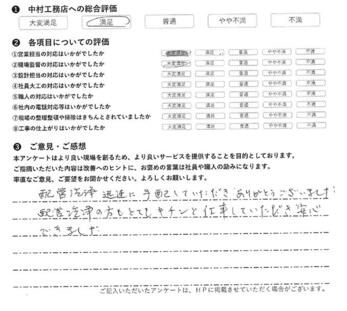 ❶ 中村工務店への総合評価
大変満足 満足 普通 やや不満 不満
❷ 各項目についての評価
①営業担当の対応はいかがでしたか 大変満足 満足 普通 やや不満 不満
②現場監督の対応はいかがでしたか 大変満足 満足 普通 やや不満 不満
③設計担当の対応はいかがでしたか 大変満足 満足 普通 やや不満 不満
④社員大工の対応はいかがでしたか 大変満足 満足 普通 やや不満 不満
⑤職人の対応はいかがでしたか 大変満足 満足 普通 やや不満 不満
⑥社内の電話対応等はいかがでしたか 大変満足 満足 普通 やや不満 不満
⑦現場の整理整頓や掃除はきちんとされていましたか 大変満足 満足 普通 やや不満 不満
⑧工事の仕上がりはいかがでしたか 大変満足 満足 普通 やや不満 不満
❸ ご意見・ご感想
本アンケートはより良い現場を創るため、より良いサービスを提供することを目的としております。
ご指摘いただいた内容は改善へのヒントに、お褒めの言葉は社員や職人の励みになります。
率直なご意見、ご要望をお聞かせください。よろしくお願いします。
配管洗浄 迅速に手配していただき ありがとうございました
配管洗浄の方もとても キチンと仕事していただき安心
できました
ご記入いただいたアンケートは、HPに掲載させていただく場合がございます。